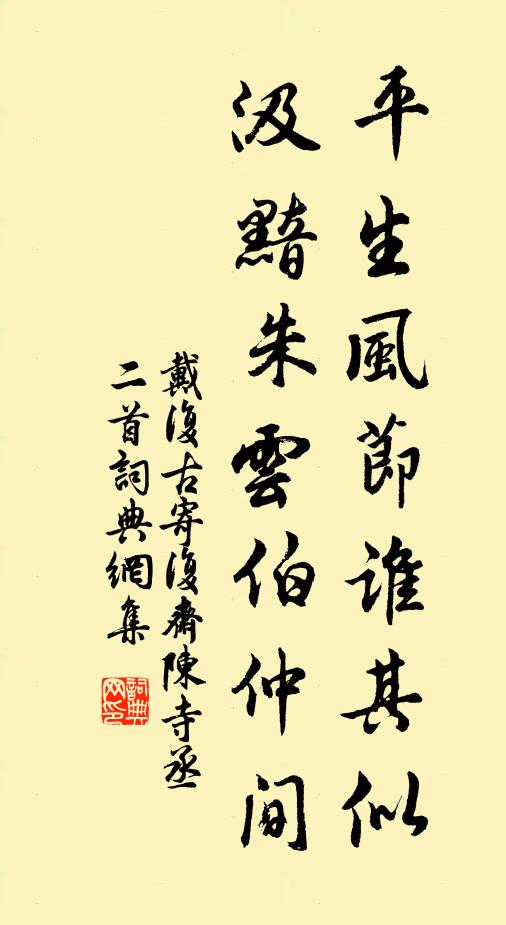 平生風節誰其似
汲黯朱雲伯仲间
戴復古寄復齋陳寺丞
二首詞典網集
詞典网印